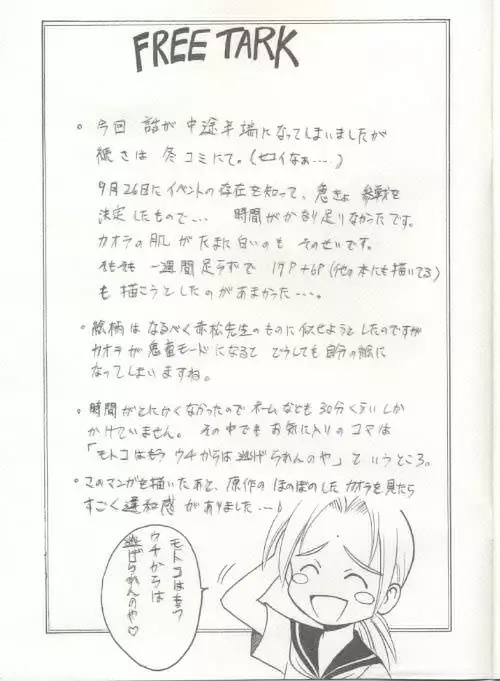 FREE TARK
。今回 話が中途半端になってしまいましたが
続きは 冬コミにて。(セコイなぁ‥‥)
9月26日にイベントの存在を知って、急きょ 参戦を
決定したもので‥‥ 時間がかなり足りなかったです。
カオラの肌がたまに白いのも そのせいです。
そもそも 一週間足らずで 17P+6P(他の本にも描いてる)
も描こうとしたのがあまかった‥‥。
。絵柄は なるべく赤松先生のものに似せようとしたのですが
カオラが悪童モードになると どうしても自分の絵に
なってしまいますね。
。時間がとにかくなかったので ネームなども 30分くらいしか
かけていません。 その中でも お気に入りのコマは
「モトコはもう ウチからは 逃げられんのや」というところ。
。このマンガを描いたあと、原作の ほのぼのした カオラを見たら
すごく違和感がありました‥‥♪
モトコはもう
ウチからは
逃げられんのや♡